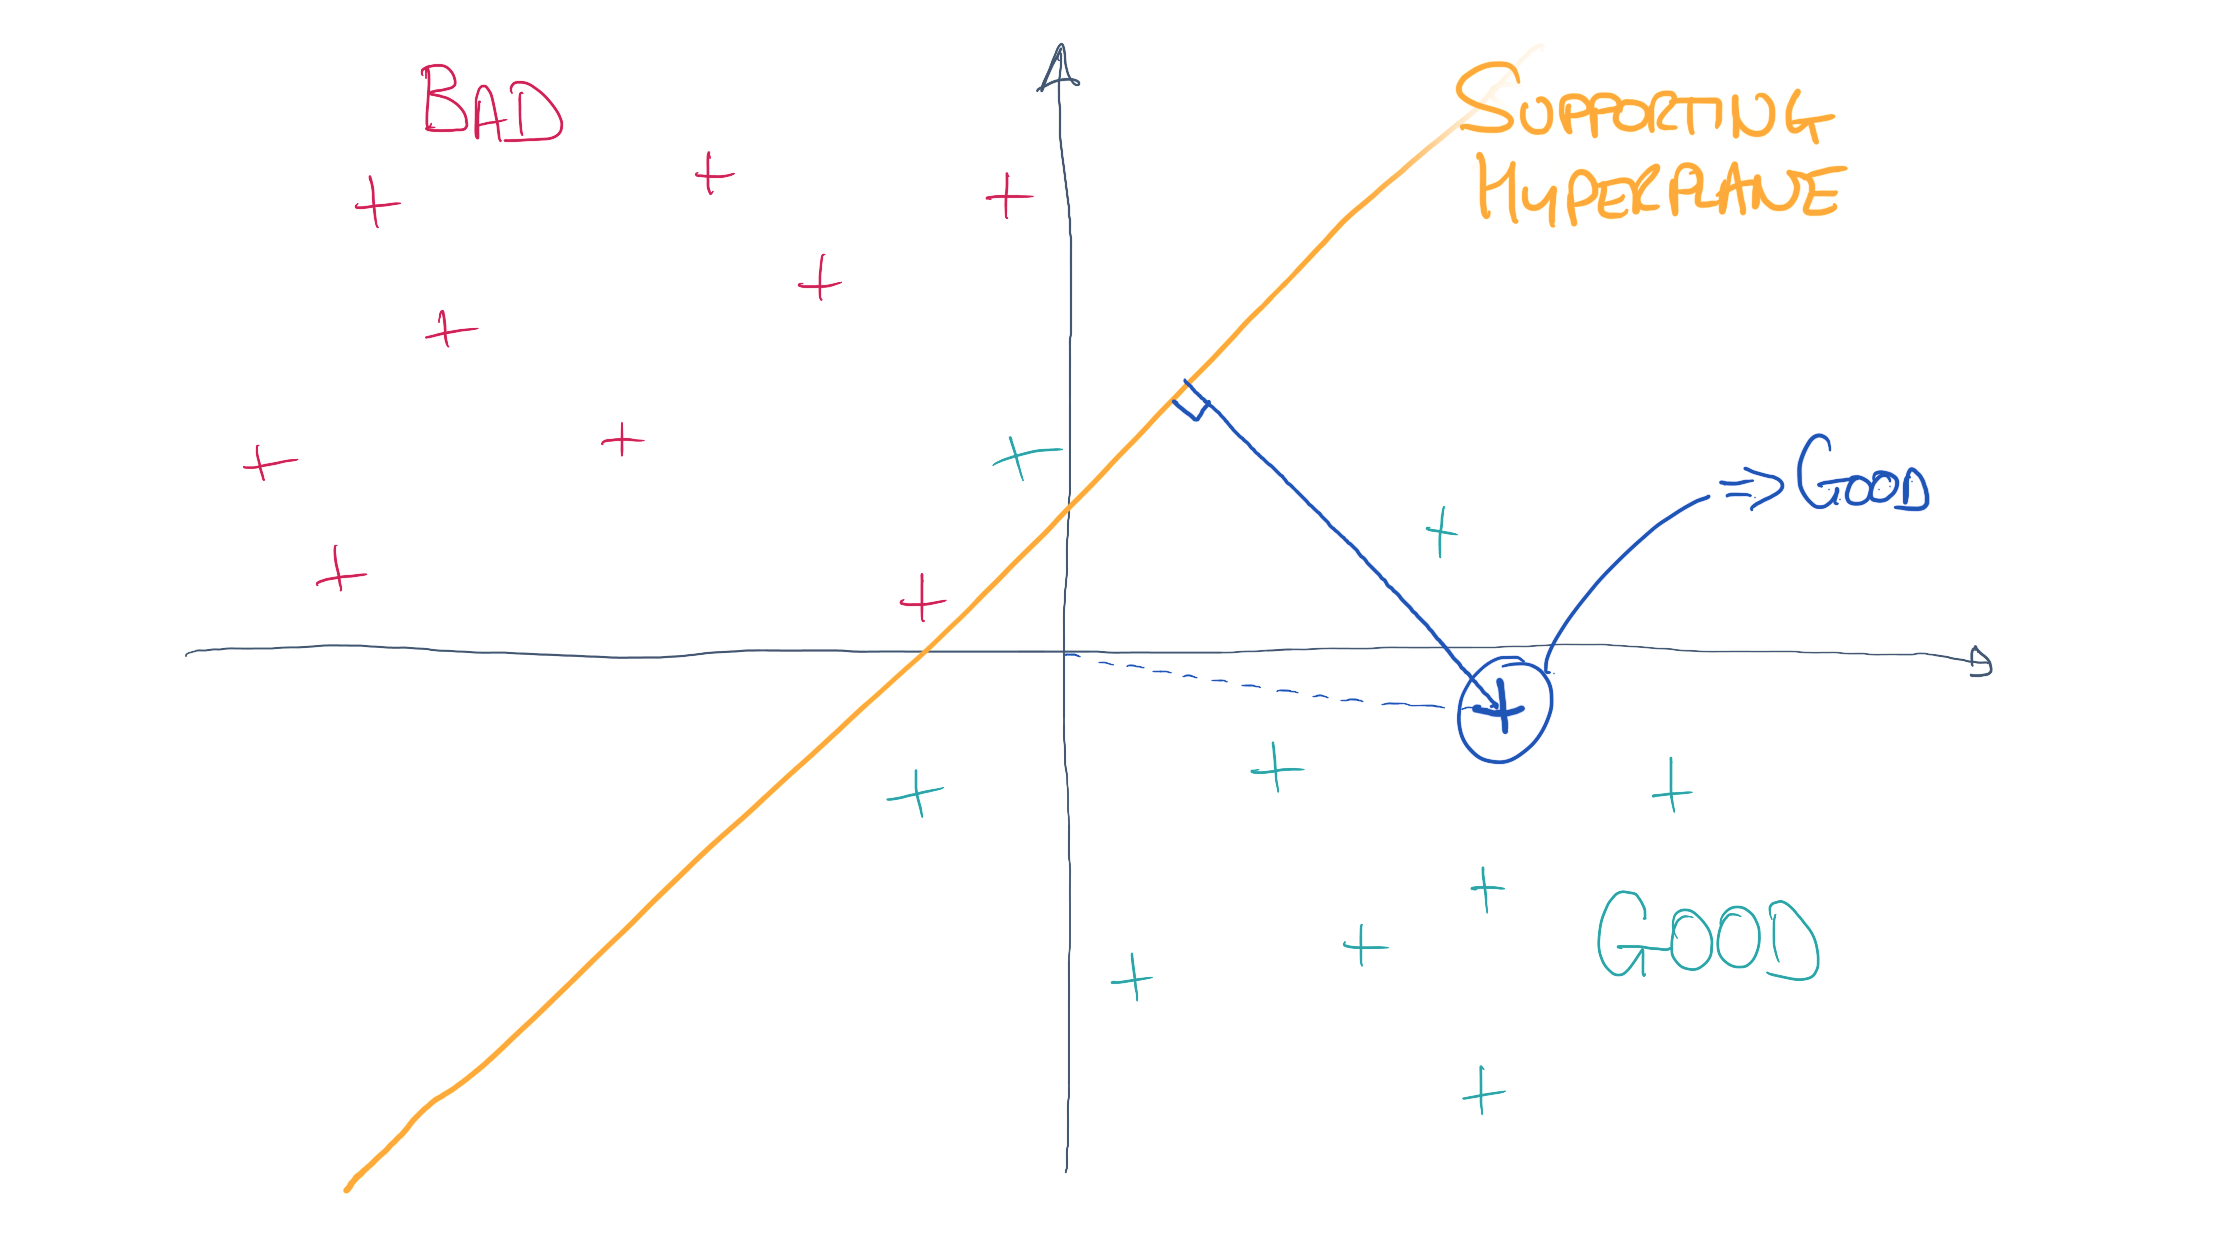 BAD
SUPPORTING
HYPERPLANE
=> GOOD
GOOD